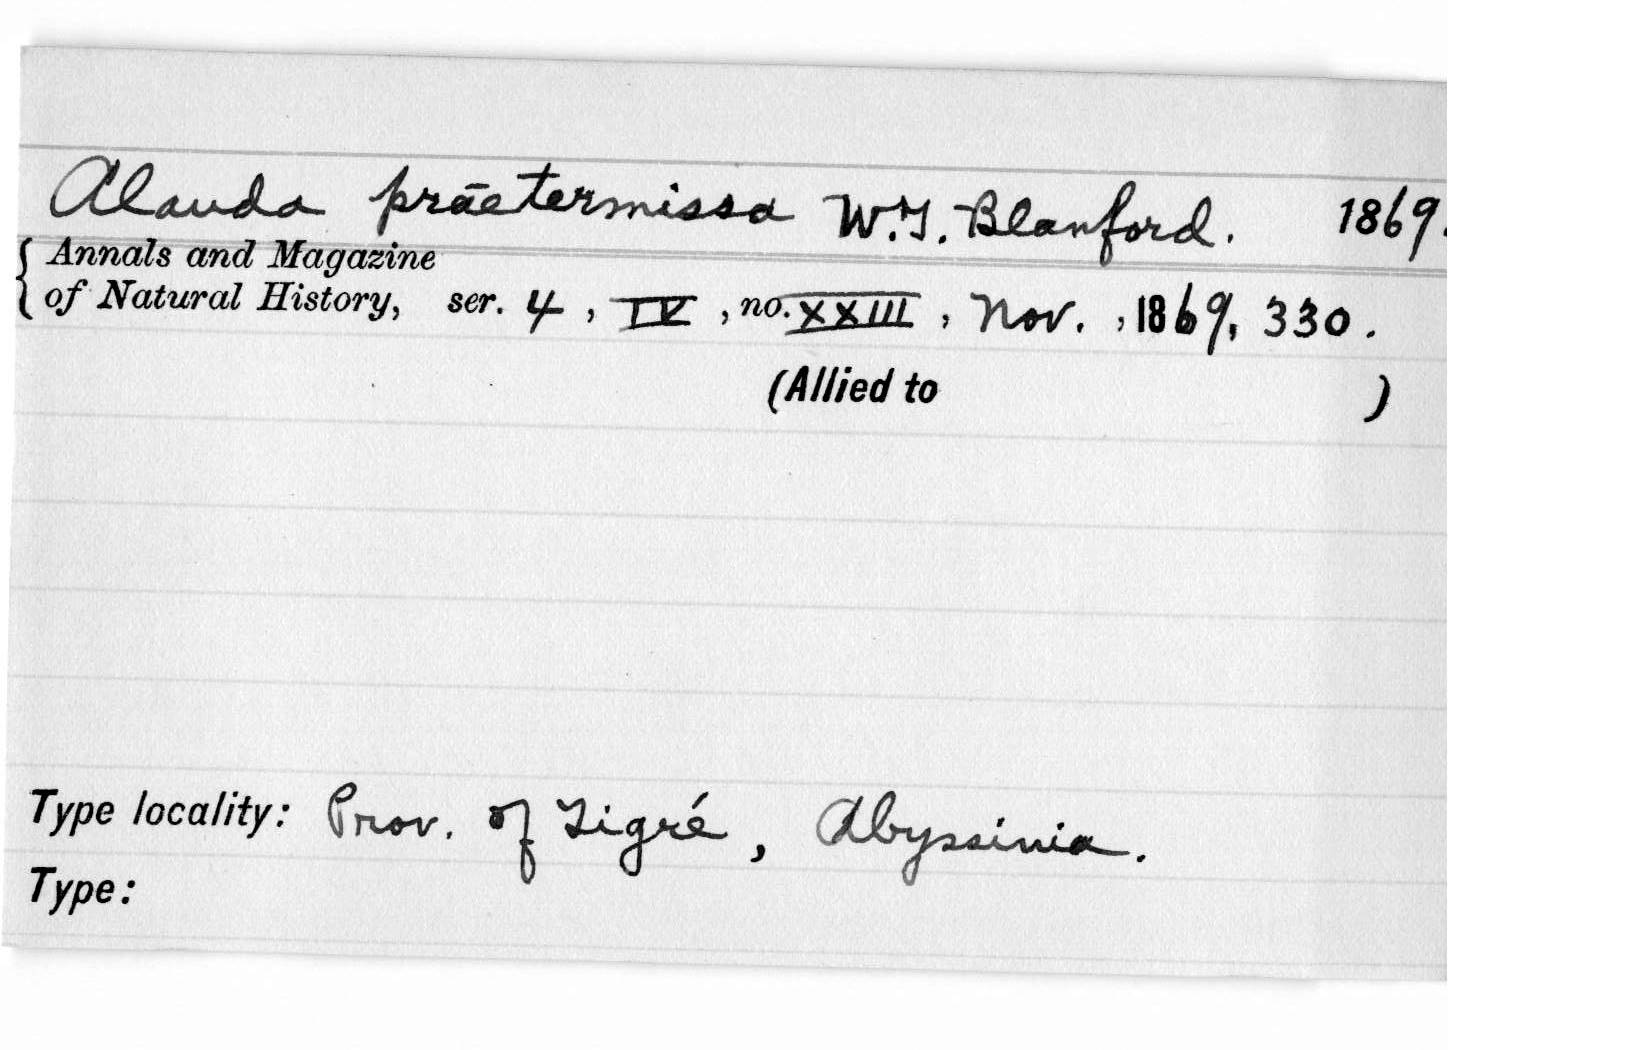 Alauda praetermissa W.T. Blanford. 1869.
Annals and Magazine
of Natural History, ser. 4, IV, no. XXIII, Nov., 1869, 330.
(Allied to )
Type locality: Prov. of Tigré, Abyssinia.
Type: